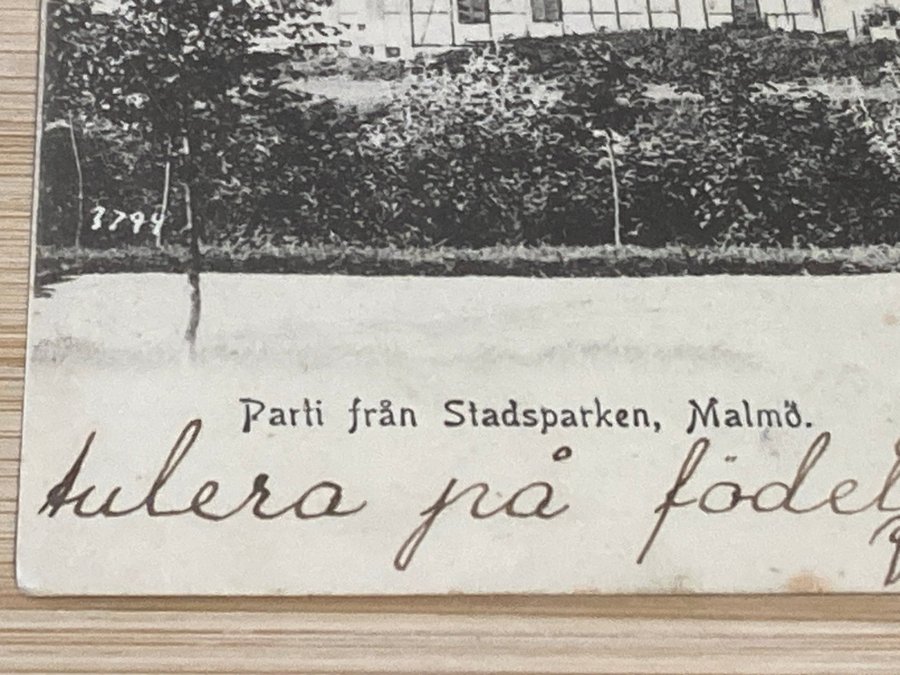 3794
Parti från Stadsparken, Malmö.
tulera på födel